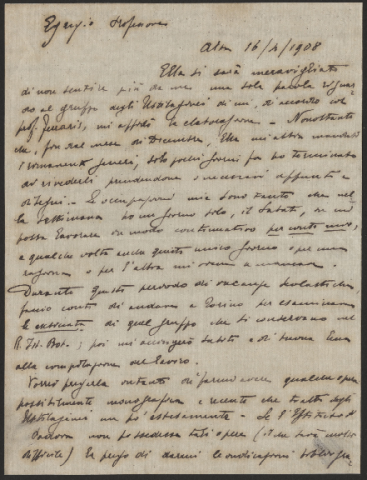 Egregio Professore
Alba 16/4/1908
Ella si sarà meravigliato
di non sentire più da me una sola parola riguar
do al gruppo degli Ustilaginei di cui, di accordo col
prof. Ferraris, mi affidò la elaborazione. - Nonostante
che, fin dal mese di Dicembre, Ella mi abbia mandato
i generi, solo pochi giorni fa ho terminato
di rivederli prendendone i necessari appunti e
disegni. - Le occupazioni mie sono tante che nel
la settimana ho un giorno solo, il Sabato, in cui
possa lavorare in modo continuativo per conto mio,
e qualche volta anche questo unico giorno o per una
ragione o per l'altra mi viene a mancare
Durante questo periodo di vacanze scolastiche
faccio conto di andare a Torino per esaminare
le essiccata di quel gruppo che si conservano nel
R. Ist. Bot.; poi mi accingerò subito e di buona lena
alla compilazione del lavoro.
Vorrei pregarla intanto di favorirmi qualche opera
possibilmente monografica e recente che tratti degli
Ustilaginei un po' estesamente - Se l'Istituto di
Padova non possedesse tali opere (il che sarà molto
difficile) La prego di darmi le indicazioni bibliogra